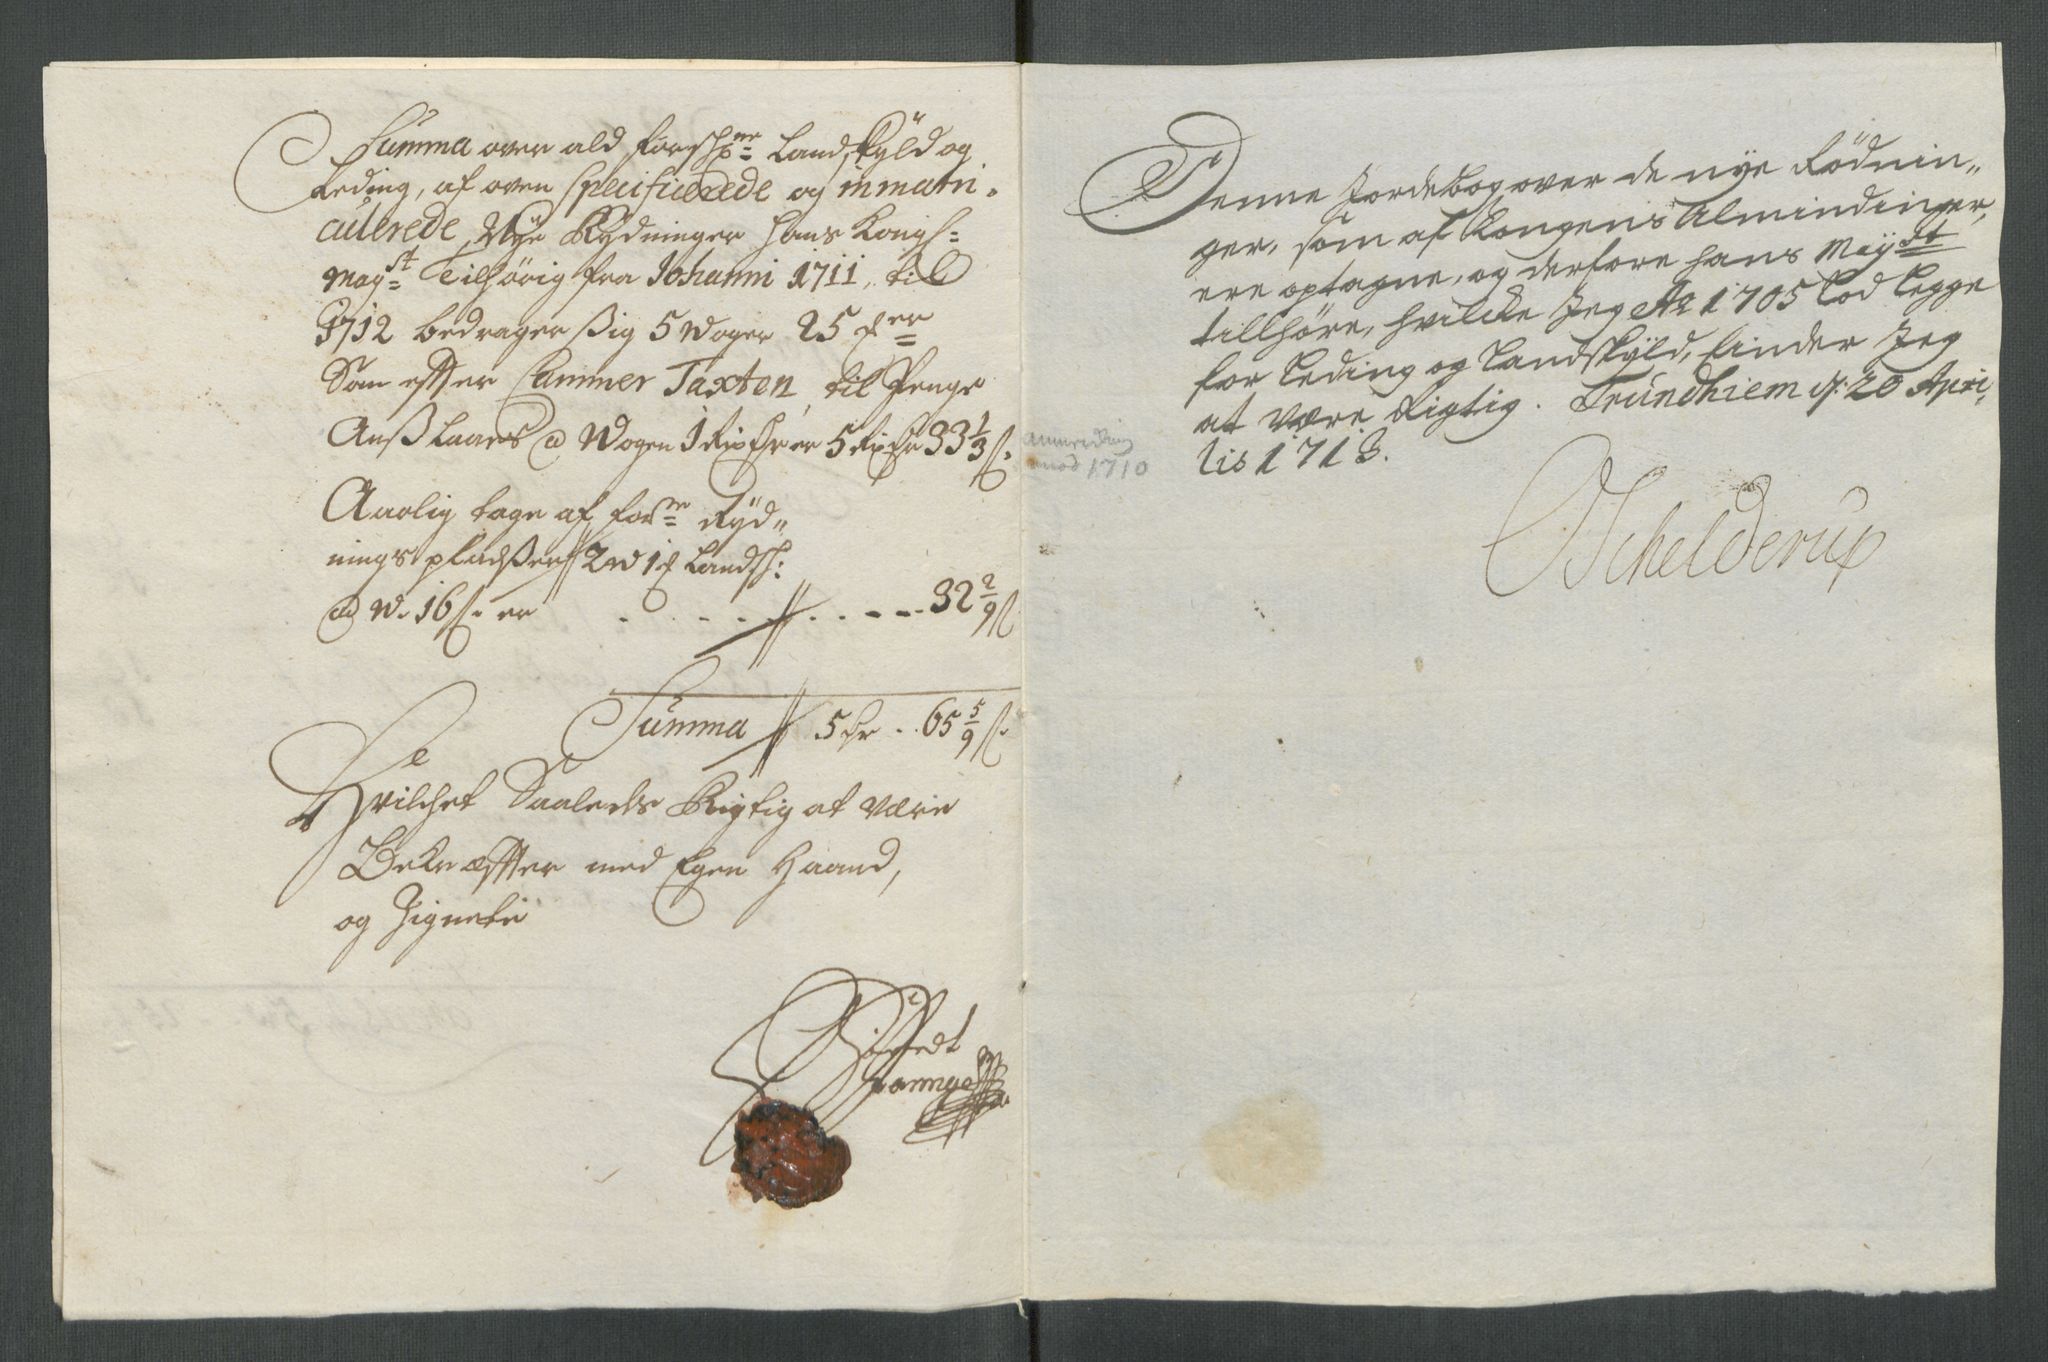 Summa over ald forschr.ne Landskyld og
Leding, af oven Specificerede og inmatri=
culerede Nÿe Rydninger Hans Kongl=
Mayst Tilhörig fra Johanni 1711, til
1712 bedrager ßig 5 Woger 25
Som effter Cammer Taxten til Penge
Anßlaaes a Wogen 1 Rixdhr er 5 Rixdr 33 1/3 ß.
Aarlig tage af forne Ryd„
nings pladßer 2 W 1 Landsk:
ad W. 16 ß. er . . . . . . 32 2/9 ß
Summa 5 dr .. 65 5/9 ß.
Hvilchet Saaledes Rigtig at være
Bekræffter med Egen Haand,
og Zignete
anmerkning
mod 1710
Denne Jordebog over de nye Rødnin„
ger, som af Kongens Almindinger,
ere optagne, og derfore hans Mayst
tillhøre, hvilcke Jeg Ao 1705 lod legge
for Leding og Landskyld, finder Jeg
at være Rigtig. Trundhiem d: 20 Apri„
lis 1713.
Schelderup